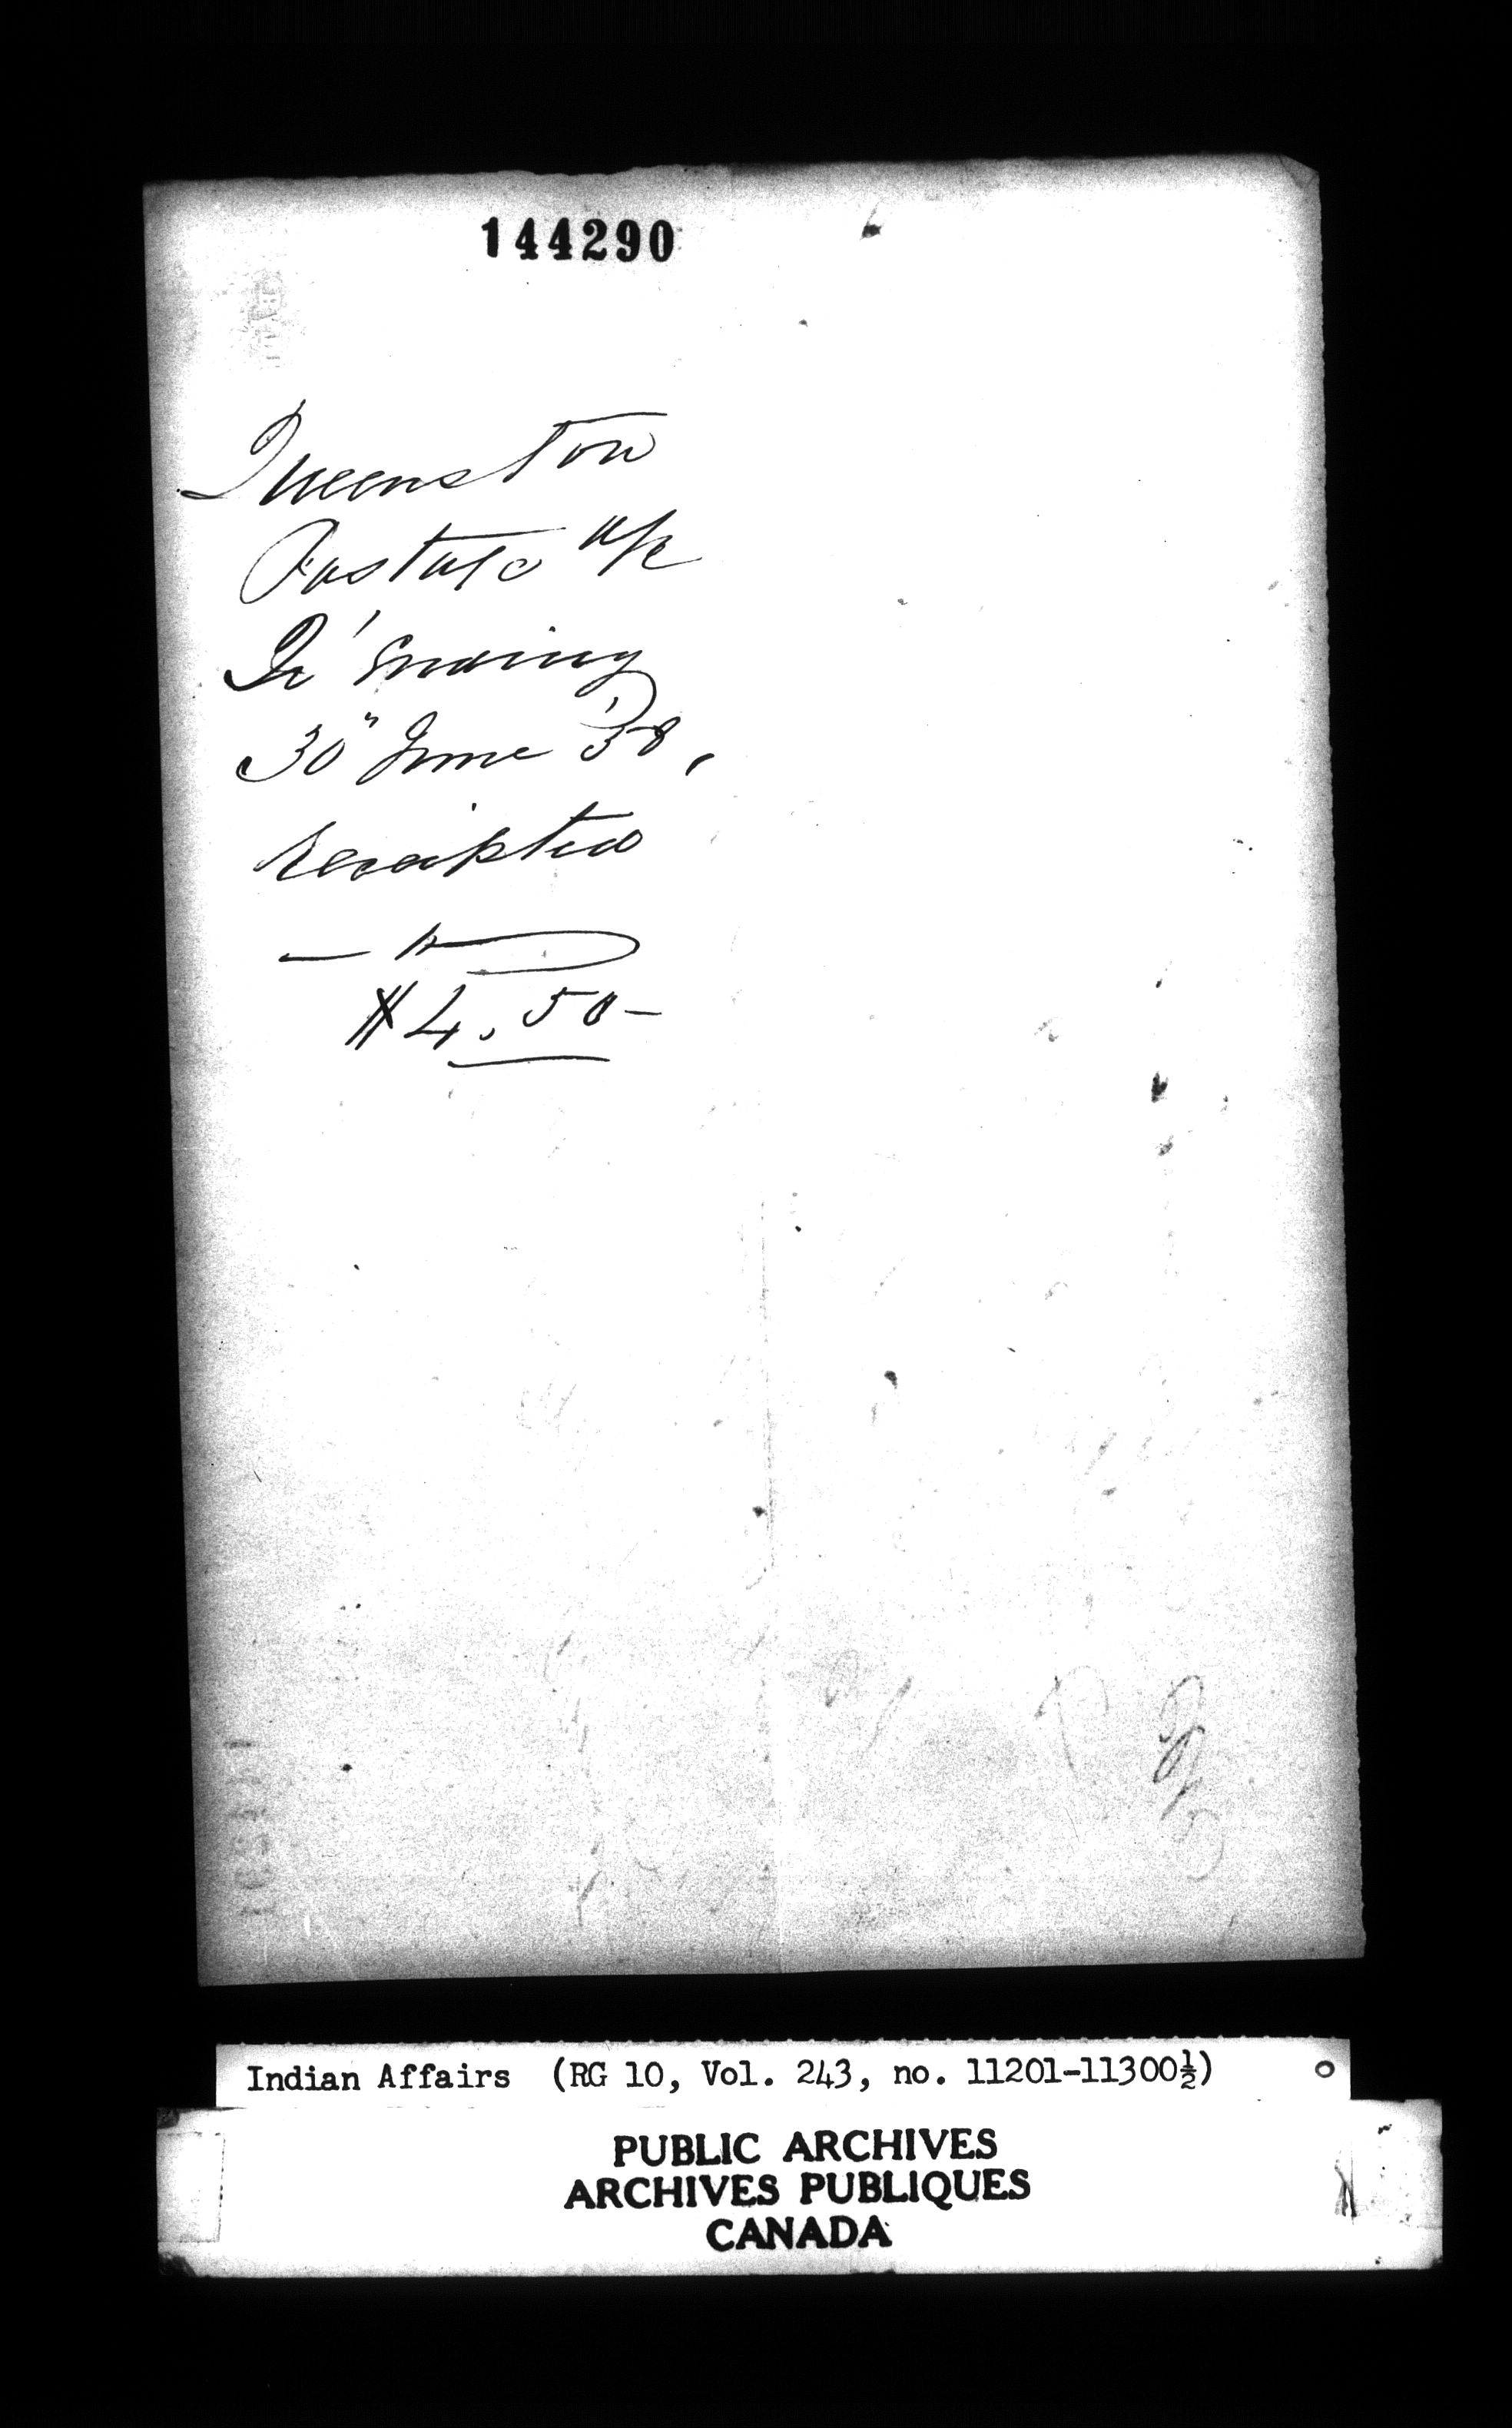 144290
Queenston
Postage a/c
Qr' Ending
30" June '58,
receipted
$4.50-
Indian Affairs (RG 10, Vol. 243, no. 11201-11300½)
PUBLIC ARCHIVES
ARCHIVES PUBLIQUES
CANADA